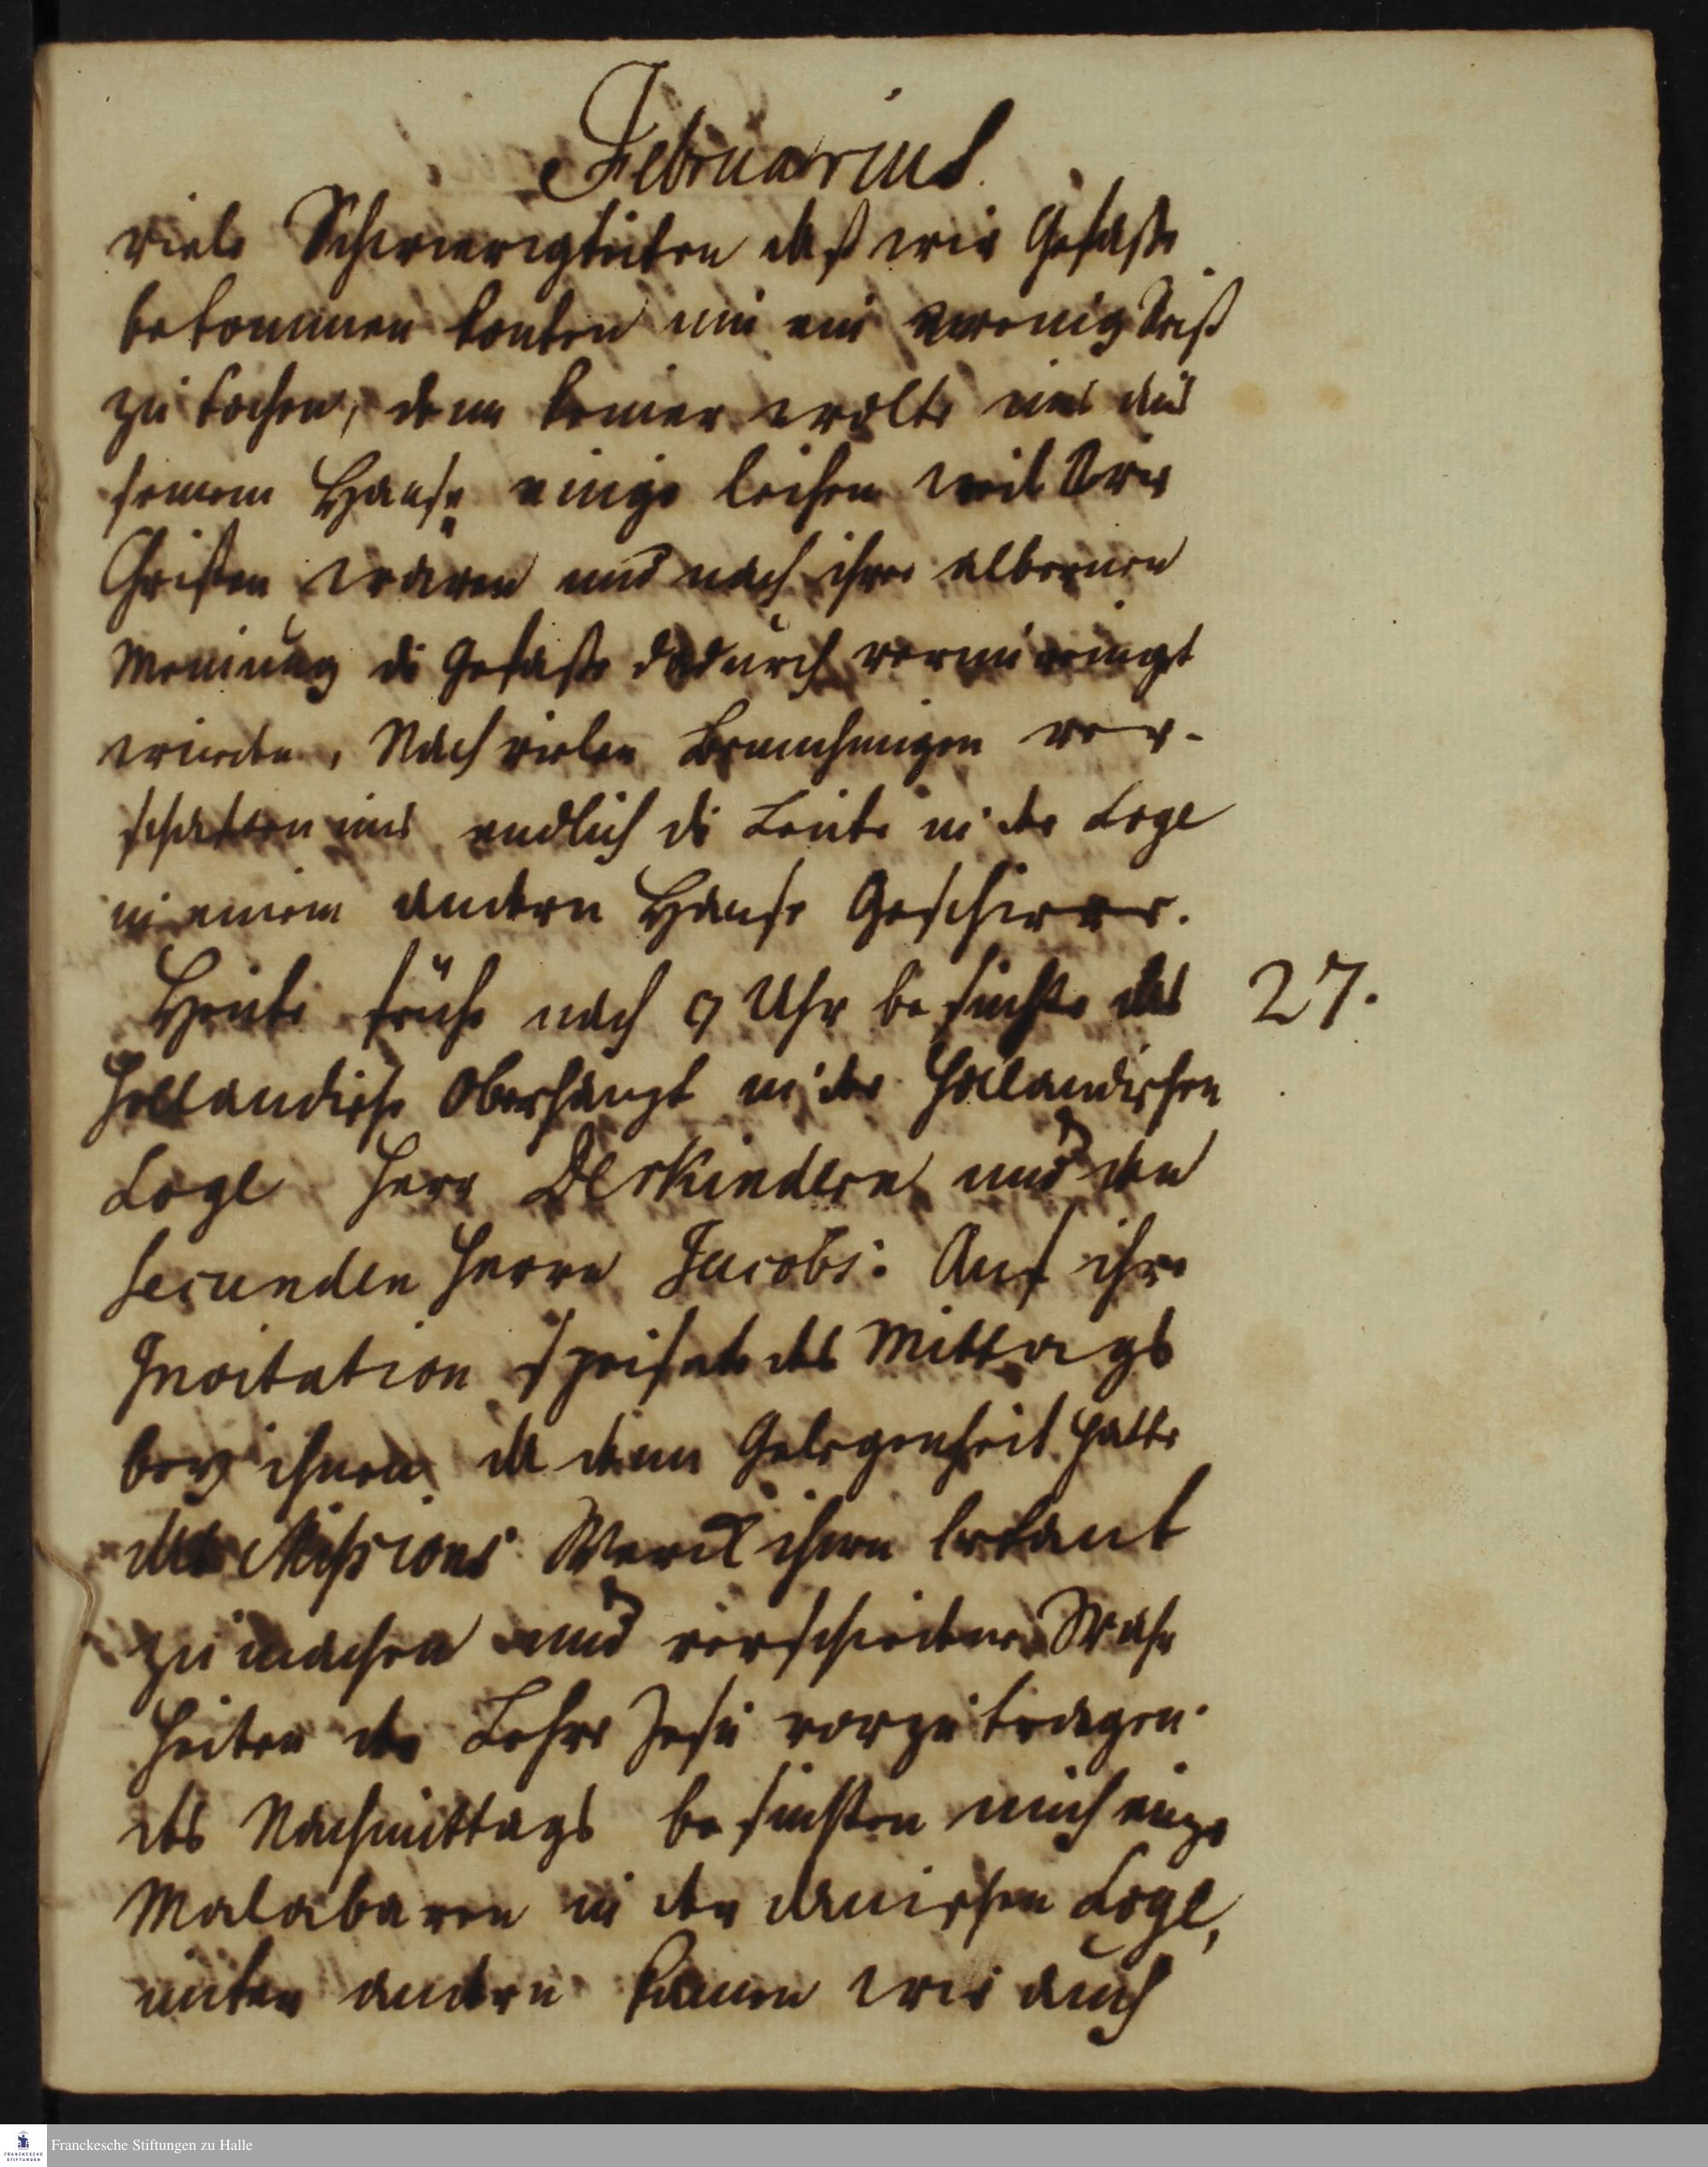 Februarius.
viele Schwierigkeiten daß wir Gefäße
bekommen konten um ein wenig Reiß
zu kochen, denn keiner wolte uns aus
seinem Hause einige leihen weil wir
Christen waren und nach ihrer albernen
Meinung die Gefäße dadurch verunreinigt
würden, Nach vielen Bemühungen ver-
schafften uns endlich die Leute in der Loge
in einem andern Hause Geschirre.
Heute frühe nach 9 Uhr besuchte das 27.
Holländische Oberhaupt in der Holländischen
Loge Herr DerKinderen und den
Secunden Herrn Jacobs. Auf ihre
Invitation speisete des Mittags
bey ihnen da denn Gelegenheit hatte
das Missions Werck ihnen bekant
zu machen und verschiedene Wahr
heiten der Lehre Jesu vorzutragen.
des Nachmittags besuchten mich einige
Malabaren in der dänischen Loge,
unter andern kamen wir auch
Franckesche Stiftungen zu Halle